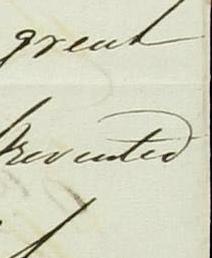 great
prevented